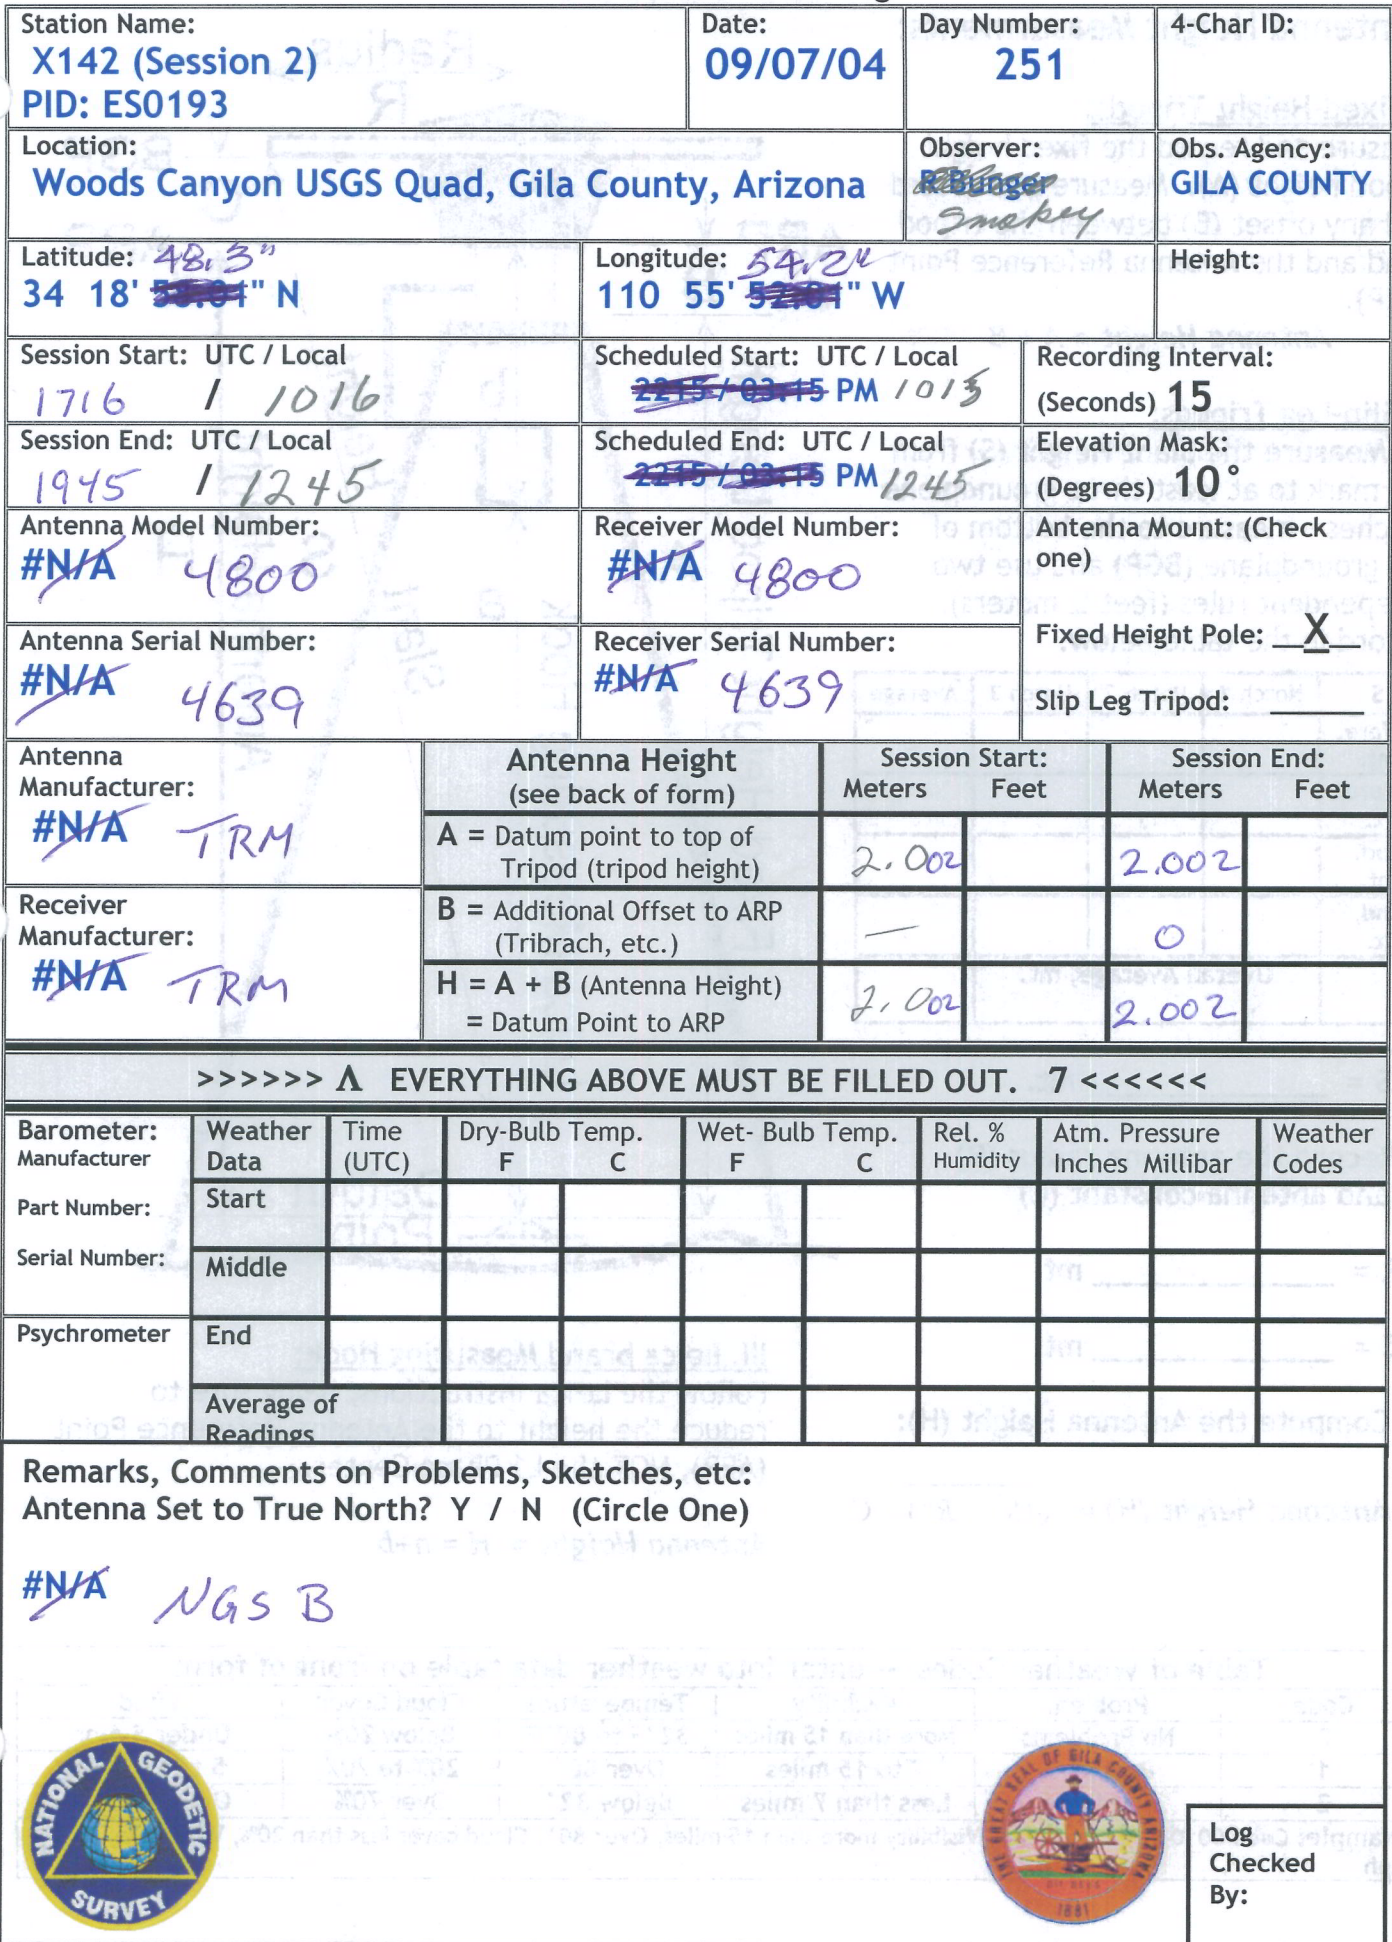 Station Name:
X142 (Session 2)
PID: ES0193
Date:
09/07/04
Day Number:
251
4-Char ID:
Location:
Woods Canyon USGS Quad, Gila County, Arizona
Observer:
R Bunger
Smokey
Obs. Agency:
GILA COUNTY
Latitude: 48.3"
34 18' " N
Longitude: 54.2"
110 55' " W
Height:
Session Start: UTC / Local
1716 / 1016
Scheduled Start: UTC / Local
2215 / 03:15 PM 1015
Recording Interval:
(Seconds) 15
Session End: UTC / Local
1945 / 1245
Scheduled End: UTC / Local
2215 / 03:15 PM 1245
Elevation Mask:
(Degrees) 10°
Antenna Model Number:
#N/A 4800
Receiver Model Number:
#N/A 4800
Antenna Mount: (Check
one)
Fixed Height Pole: X
Slip Leg Tripod:
Antenna Serial Number:
#N/A 4639
Receiver Serial Number:
#N/A 4639
Antenna
Manufacturer:
#N/A TRM
Receiver
Manufacturer:
#N/A TRM
Antenna Height
(see back of form)
Session Start:
Meters Feet
Session End:
Meters Feet
A = Datum point to top of
Tripod (tripod height)
2.002 2.002
B = Additional Offset to ARP
(Tribrach, etc.)
— 0
H = A + B (Antenna Height)
= Datum Point to ARP
2.002 2.002
>>>>>> Λ EVERYTHING ABOVE MUST BE FILLED OUT. 7 <<<<<<
Barometer:
Manufacturer
Part Number:
Serial Number:
Psychrometer
Weather
Data
Time
(UTC)
Dry-Bulb Temp.
F C
Wet- Bulb Temp.
F C
Rel. %
Humidity
Atm. Pressure
Inches Millibar
Weather
Codes
Start
Middle
End
Average of
Readings
Remarks, Comments on Problems, Sketches, etc:
Antenna Set to True North? Y / N (Circle One)
#N/A NGS B
NATIONAL GEODETIC
SURVEY
THE GREAT SEAL OF GILA COUNTY ARIZONA
1881
Log
Checked
By: